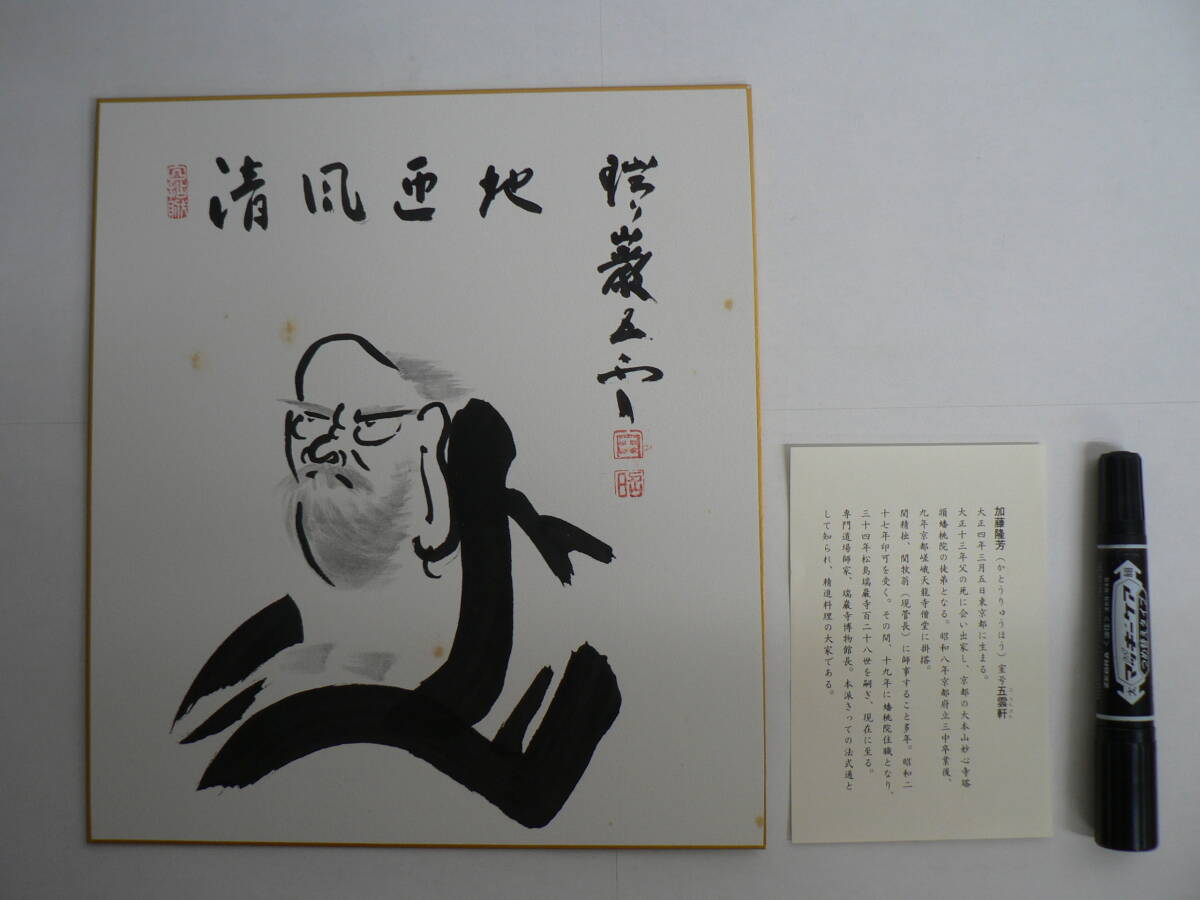 清風迊地
瑞巌五雲
加藤隆芳（かとうりゅうほう）室号五雲軒
大正四年三月五日東京都に生まる。
大正十三年父の死に会い出家し、京都の大本山妙心寺塔
頭蟠桃院の徒弟となる。昭和八年京都府立三中卒業後、
九年京都嵯峨天龍寺僧堂に掛搭。
関精拙、関牧翁（現管長）に師事すること多年。昭和二
十七年印可を受く。その間、十九年に蟠桃院住職となり、
三十四年松島瑞巌寺百二十八世を嗣ぎ、現在に至る。
専門道場師家、瑞巌寺博物館長。本派きっての法式通と
して知られ、精進料理の大家である。
細
マッキーケア
太